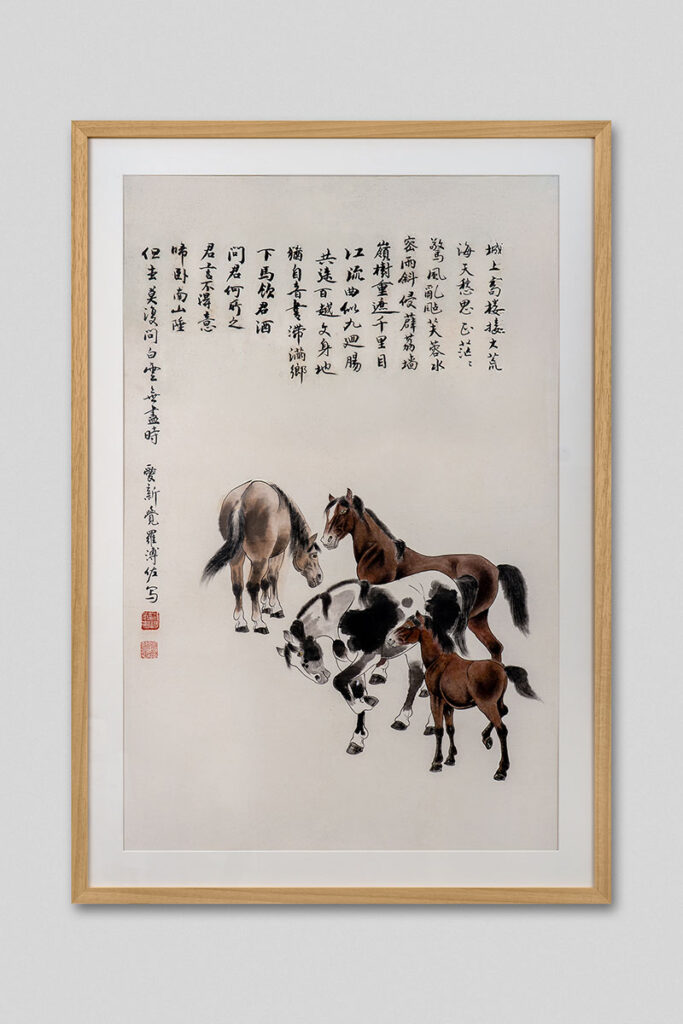 城上高楼接大荒
海天愁思正茫〻
驚風亂颭芙蓉水
密雨斜侵薜荔墙
嶺樹重遮千里目
江流曲似九廻腸
共 百越文身地
猶自音書滯满鄉
下馬飲君酒
問君何所之
君言不得意
歸卧南山陲
但去莫復問白雲無盡時 愛新覺羅溥佐写